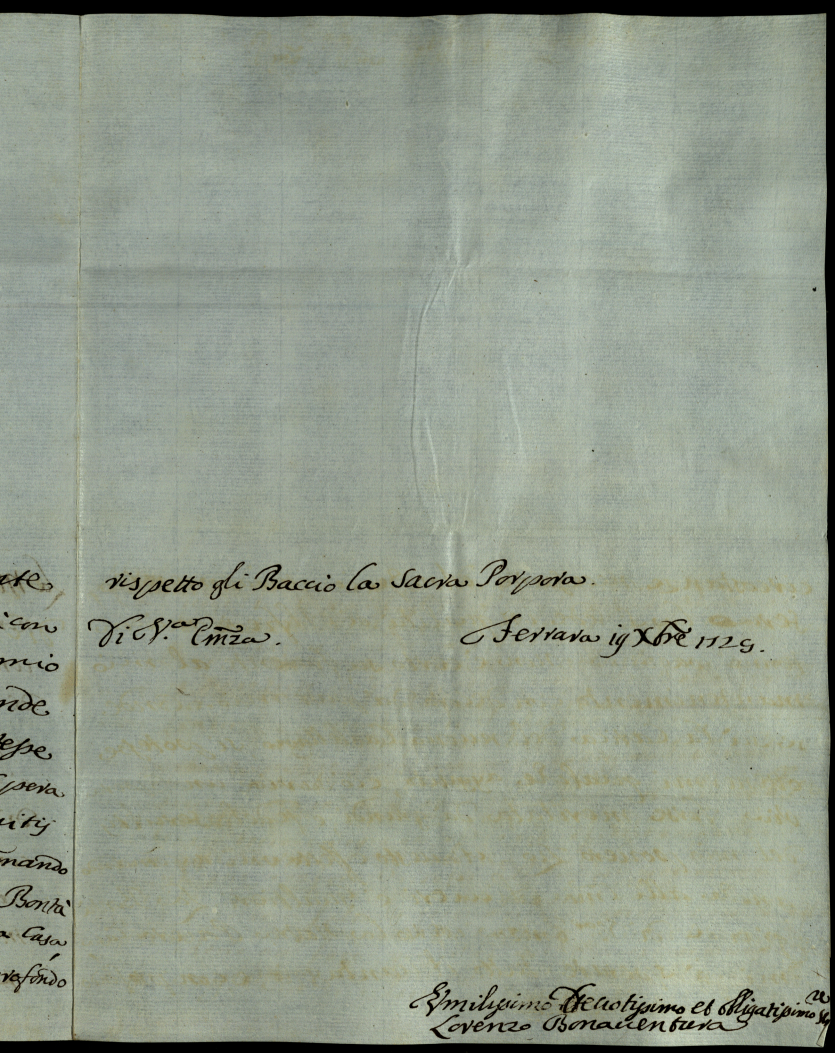 ate
i con
mio
nde
esse
spera
uitij
nando
Bontà
a Casa
rofondo
rispetto gli Baccio la Sacra Porpora.
Di V.ª Emza.
Ferrara 19 Xbre 1729.
Vmilissimo Deuotissimo et Obligatissimo
Lorenzo Bonauentura